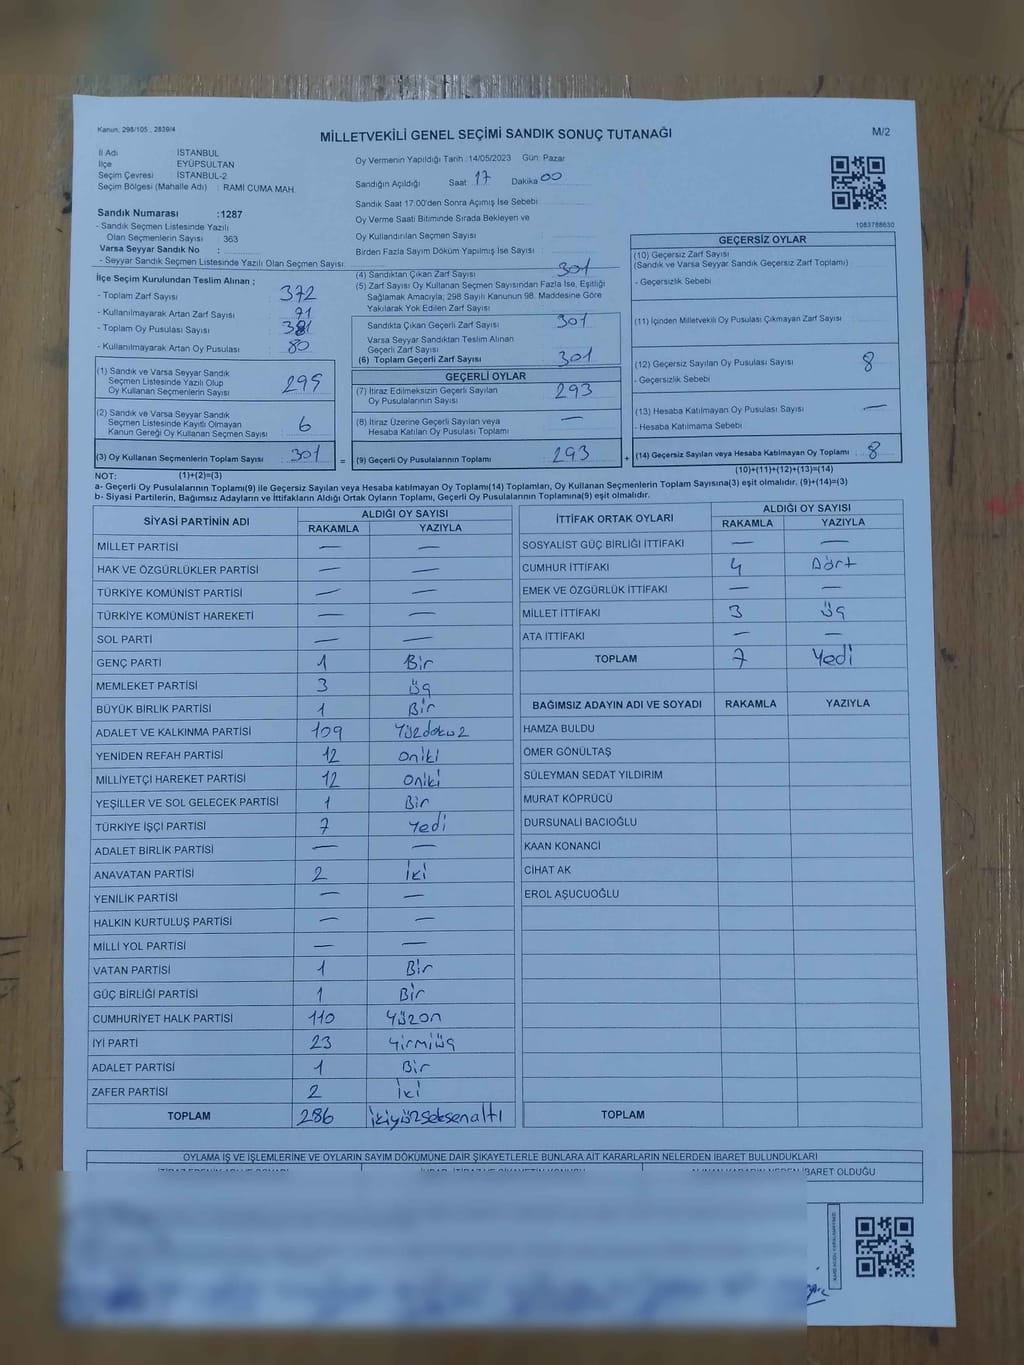 Kanun, 298/105 , 2839/4
MİLLETVEKİLİ GENEL SEÇİMİ SANDIK SONUÇ TUTANAĞI
M/2
İl Adı : İSTANBUL
İlçe : EYÜPSULTAN
Seçim Çevresi : İSTANBUL-2
Seçim Bölgesi (Mahalle Adı) : RAMİ CUMA MAH.
Sandık Numarası :1287
- Sandık Seçmen Listesinde Yazılı
Olan Seçmenlerin Sayısı : 363
Varsa Seyyar Sandık No :
- Seyyar Sandık Seçmen Listesinde Yazılı Olan Seçmen Sayısı:
Oy Vermenin Yapıldığı Tarih :14/05/2023 Gün: Pazar
Sandığın Açıldığı Saat 17 Dakika 00
Sandık Saat 17:00'den Sonra Açımış İse Sebebi
Oy Verme Saati Bitiminde Sırada Bekleyen ve
Oy Kullandırılan Seçmen Sayısı
Birden Fazla Sayım Döküm Yapılmış İse Sayısı :
1083788630
İlçe Seçim Kurulundan Teslim Alınan ;
- Toplam Zarf Sayısı 372
- Kullanılmayarak Artan Zarf Sayısı 71
- Toplam Oy Pusulası Sayısı 381
- Kullanılmayarak Artan Oy Pusulası 80
(1) Sandık ve Varsa Seyyar Sandık
Seçmen Listesinde Yazılı Olup
Oy Kullanan Seçmenlerin Sayısı 295
(2) Sandık ve Varsa Seyyar Sandık
Seçmen Listesinde Kayıtlı Olmayan
Kanun Gereği Oy Kullanan Seçmen Sayısı 6
(3) Oy Kullanan Seçmenlerin Toplam Sayısı 301 =
(4) Sandıktan Çıkan Zarf Sayısı 301
(5) Zarf Sayısı Oy Kullanan Seçmen Sayısından Fazla İse, Eşitliği
Sağlamak Amacıyla; 298 Sayılı Kanunun 98. Maddesine Göre
Yakılarak Yok Edilen Zarf Sayısı
Sandıkta Çıkan Geçerli Zarf Sayısı 301
Varsa Seyyar Sandıktan Teslim Alınan
Geçerli Zarf Sayısı
(6) Toplam Geçerli Zarf Sayısı 301
GEÇERLİ OYLAR
(7) İtiraz Edilmeksizin Geçerli Sayılan
Oy Pusulalarının Sayısı 293
(8) İtiraz Üzerine Geçerli Sayılan veya
Hesaba Katılan Oy Pusulası Toplamı —
(9) Geçerli Oy Pusulalarının Toplamı 293 +
GEÇERSİZ OYLAR
(10) Geçersiz Zarf Sayısı
(Sandık ve Varsa Seyyar Sandık Geçersiz Zarf Toplamı)
- Geçersizlik Sebebi
(11) İçinden Milletvekili Oy Pusulası Çıkmayan Zarf Sayısı
(12) Geçersiz Sayılan Oy Pusulası Sayısı 8
- Geçersizlik Sebebi
(13) Hesaba Katılmayan Oy Pusulası Sayısı —
- Hesaba Katılmama Sebebi
(14) Geçersiz Sayılan veya Hesaba Katılmayan Oy Toplamı 8
NOT: (1)+(2)=(3)
(10)+(11)+(12)+(13)=(14)
a- Geçerli Oy Pusulalarının Toplamı(9) ile Geçersiz Sayılan veya Hesaba katılmayan Oy Toplamı(14) Toplamları, Oy Kullanan Seçmenlerin Toplam Sayısına(3) eşit olmalıdır. (9)+(14)=(3)
b- Siyasi Partilerin, Bağımsız Adayların ve İttifakların Aldığı Ortak Oyların Toplamı, Geçerli Oy Pusulalarının Toplamına(9) eşit olmalıdır.
SİYASİ PARTİNİN ADI ALDIĞI OY SAYISI
RAKAMLA YAZIYLA
MİLLET PARTİSİ — —
HAK VE ÖZGÜRLÜKLER PARTİSİ — —
TÜRKİYE KOMÜNİST PARTİSİ — —
TÜRKİYE KOMÜNİST HAREKETİ — —
SOL PARTİ — —
GENÇ PARTİ 1 Bir
MEMLEKET PARTİSİ 3 üç
BÜYÜK BİRLİK PARTİSİ 1 Bir
ADALET VE KALKINMA PARTİSİ 109 Yüzdokuz
YENİDEN REFAH PARTİSİ 12 oniki
MİLLİYETÇİ HAREKET PARTİSİ 12 oniki
YEŞİLLER VE SOL GELECEK PARTİSİ 1 Bir
TÜRKİYE İŞÇİ PARTİSİ 7 Yedi
ADALET BİRLİK PARTİSİ — —
ANAVATAN PARTİSİ 2 İki
YENİLİK PARTİSİ — —
HALKIN KURTULUŞ PARTİSİ — —
MİLLİ YOL PARTİSİ — —
VATAN PARTİSİ 1 Bir
GÜÇ BİRLİĞİ PARTİSİ 1 Bir
CUMHURİYET HALK PARTİSİ 110 Yüzon
İYİ PARTİ 23 Yirmiüç
ADALET PARTİSİ 1 Bir
ZAFER PARTİSİ 2 İki
TOPLAM 286 İkiyüzseksenaltı
İTTİFAK ORTAK OYLARI ALDIĞI OY SAYISI
RAKAMLA YAZIYLA
SOSYALİST GÜÇ BİRLİĞİ İTTİFAKI — —
CUMHUR İTTİFAKI 4 Dört
EMEK VE ÖZGÜRLÜK İTTİFAKI — —
MİLLET İTTİFAKI 3 üç
ATA İTTİFAKI — —
TOPLAM 7 Yedi
BAĞIMSIZ ADAYIN ADI VE SOYADI RAKAMLA YAZIYLA
HAMZA BULDU
ÖMER GÖNÜLTAŞ
SÜLEYMAN SEDAT YILDIRIM
MURAT KÖPRÜCÜ
DURSUNALİ BACIOĞLU
KAAN KONANCİ
CİHAT AK
EROL AŞUCUOĞLU
TOPLAM
OYLAMA İŞ VE İŞLEMLERİNE VE OYLARIN SAYIM DÖKÜMÜNE DAİR ŞİKAYETLERLE BUNLARA AİT KARARLARIN NELERDEN İBARET BULUNDUKLARI
İBARET OLDUĞU